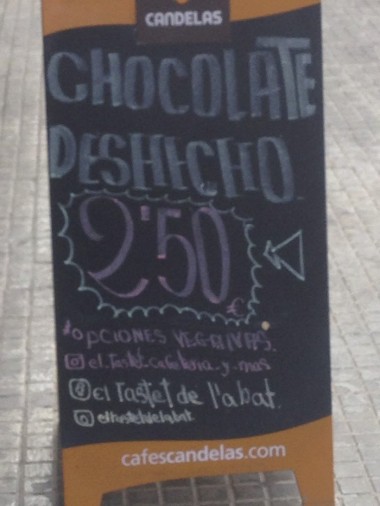 CANDELAS
CHOCOLATE
DESHECHO
2'50 €
OPCIONES VEGETALES.
el.tastet.cafeteria.y.mas
@El Tastet de l'abat.
eltastetdelabat
cafescandelas.com